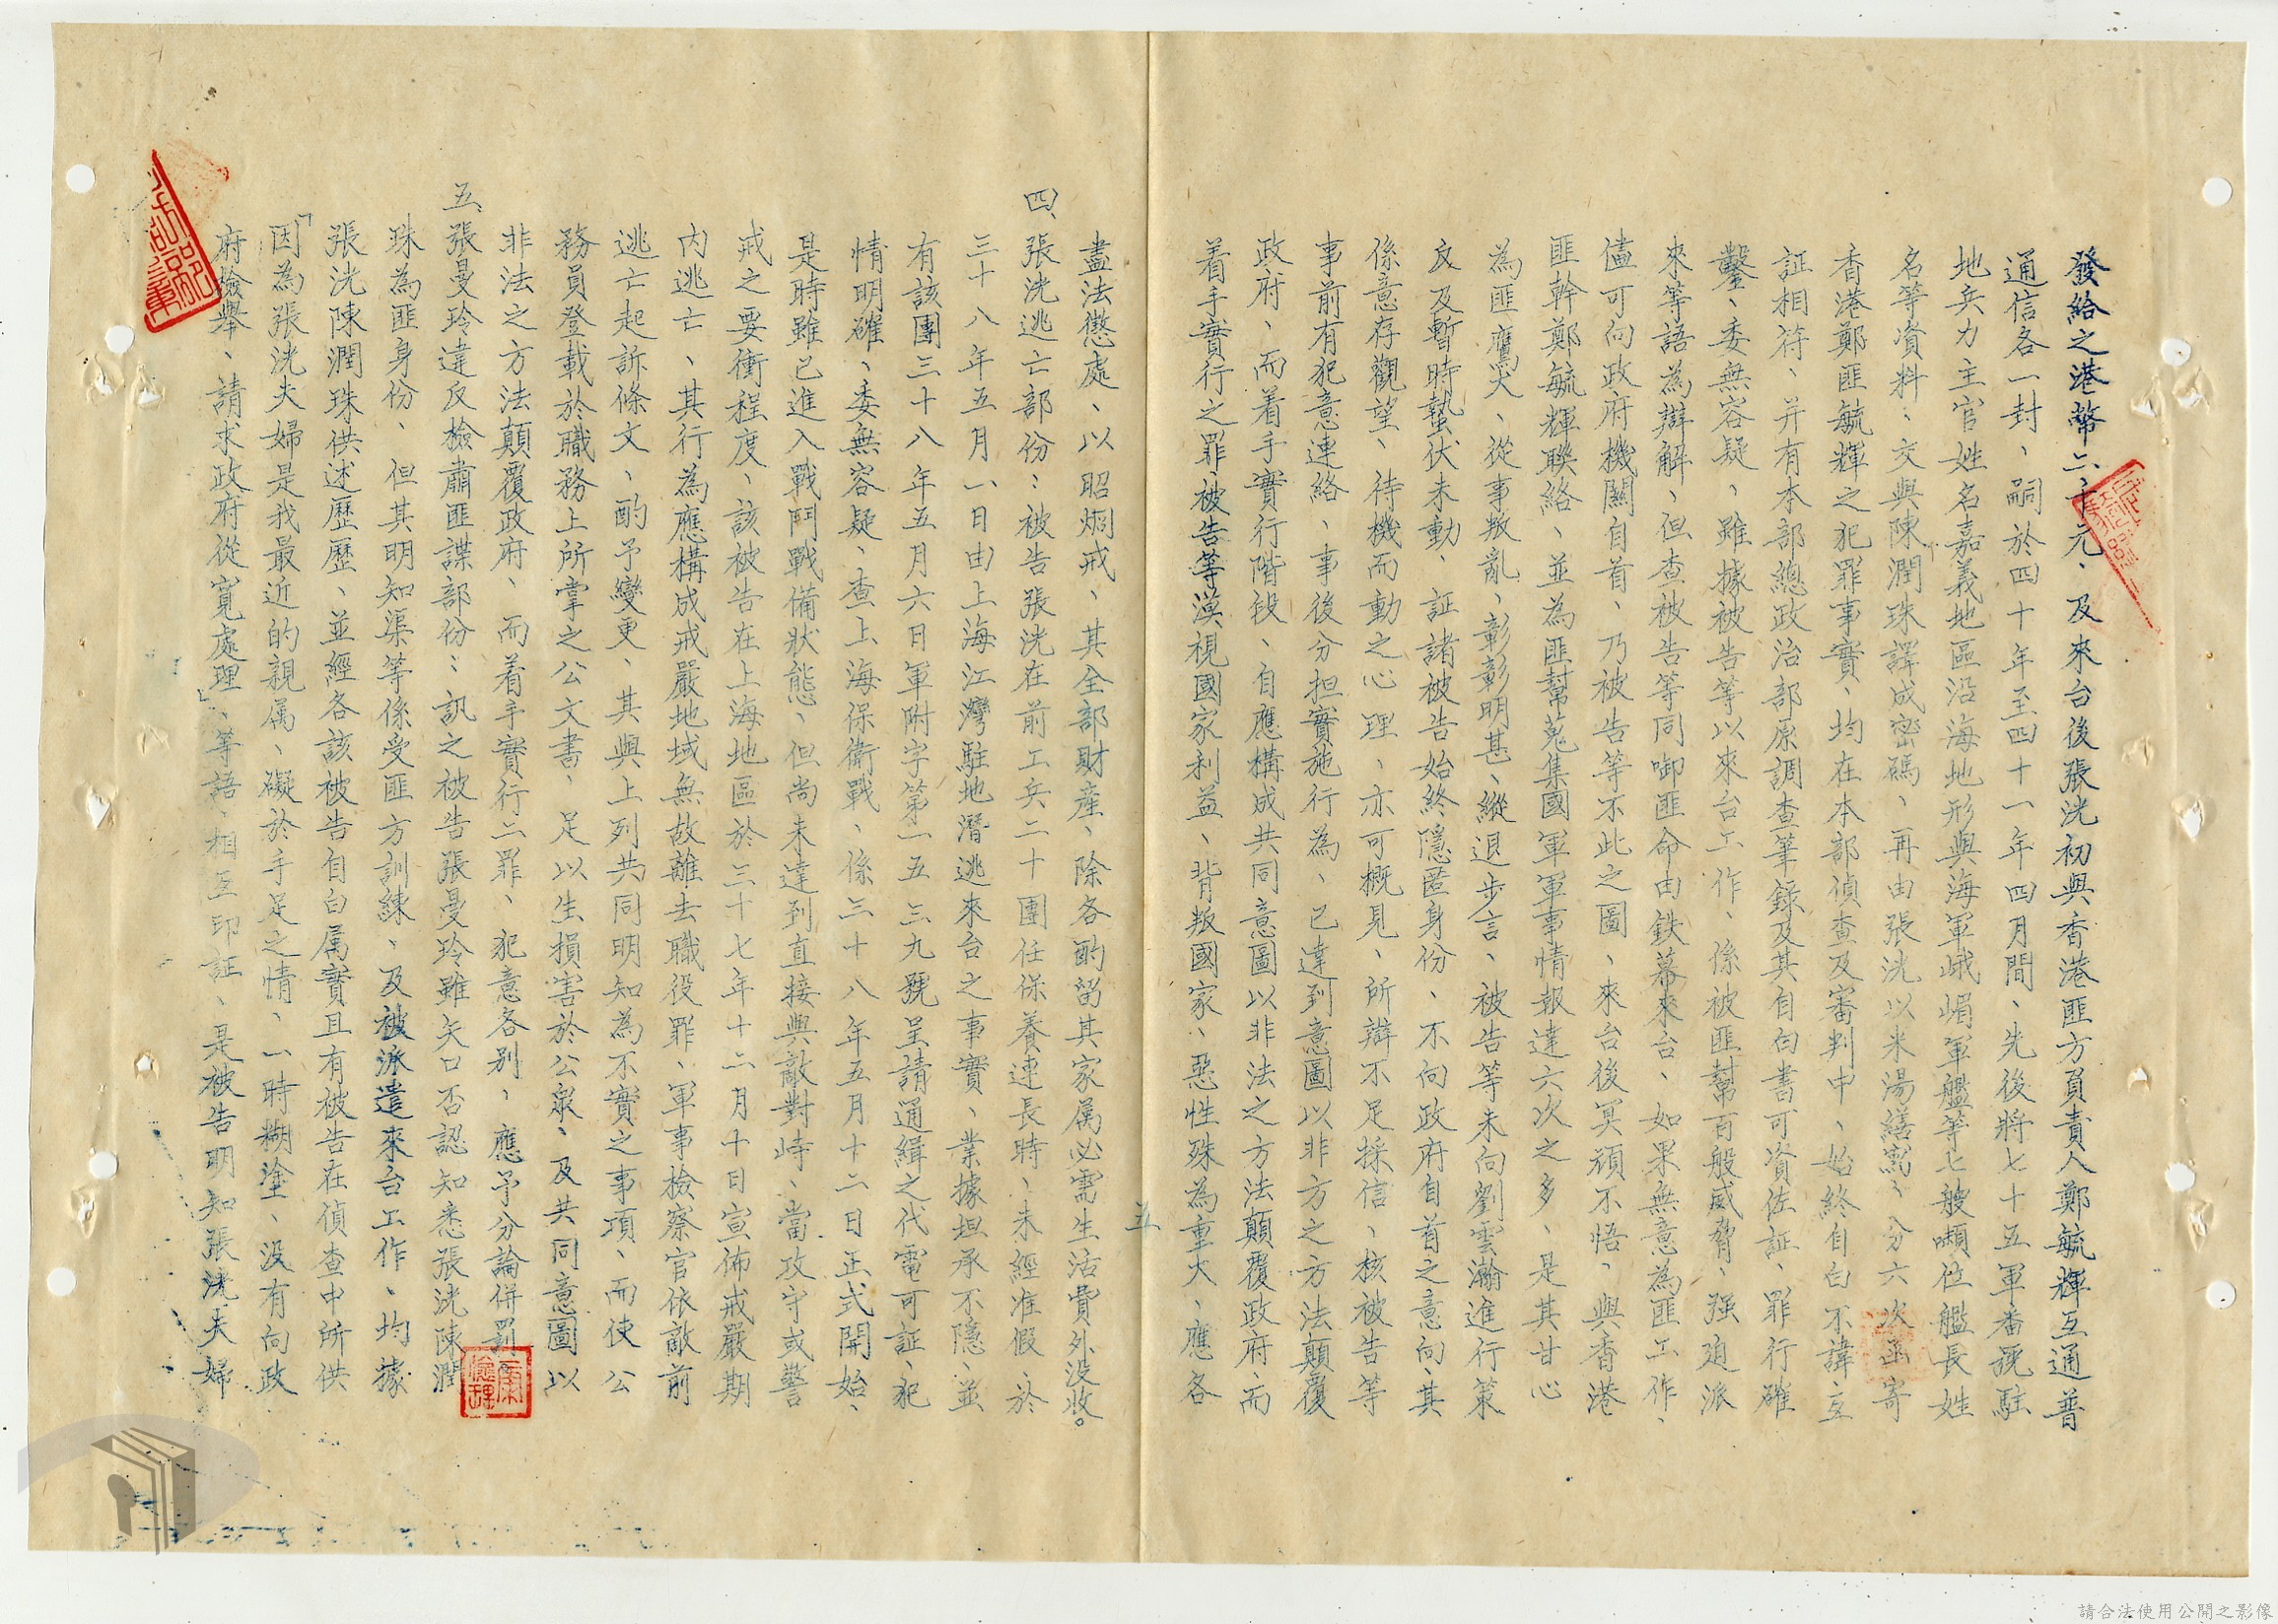 發給之港幣二千元、及來台後張洸初與香港匪方負責人鄭毓輝互通普
通信各一封、嗣於四十年至四十一年四月間、先後將七十五軍番號駐
地兵力主官姓名嘉義地區沿海地形與海軍峨嵋軍艦等七艘噸位艦長姓
名等資料：交與陳潤珠譯成密碼、再由張洸以米湯繕寫、分六次函寄
香港鄭匪毓輝之犯罪事實、均在本部偵查及審判中、始終自白不諱互
証相符、并有本部總政治部原調查筆錄及其自白書可資佐証、罪行確
鑿、委無容疑、雖據被告等以來台工作、係被匪幫百般威脅、强迫派
來等語為辯解、但查被告等同啣匪命由鉄幕來台、如果無意為匪工作、
儘可向政府機關自首、乃被告等不此之圖、來台後冥頑不悟、與香港
匪幹鄭毓輝聯絡、並為匪幫蒐集國軍軍事情報達六次之多、是其甘心
為匪鷹犬、從事叛亂、彰彰明甚、縱退步言、被告等未向劉雲瀚進行策
反及暫時蟄伏未動、証諸被告始終隱匿身份、不向政府自首之意向、其
係意存觀望、待機而動之心理、亦可概見、所辯不足採信、核被告等
事前有犯意連絡、事後分担實施行為、已達到意圖以非方之方法顛覆
政府、而着手實行階段、自應構成共同意圖以非法之方法顛覆政府、而
着手實行之罪被告等漠視國家利益、背叛國家、惡性殊為重大、應各
五
盡法懲處、以昭烱戒、其全部財產、除各酌留其家属必需生活費外没收。
四、張洸逃亡部份：被告張洸在前工兵二十團任保養連長時、未經准假、於
三十八年五月一日由上海江灣駐地潛逃來台之事實、業據坦承不隱、並
有該團三十八年五月六日軍附字第一五三九號呈請通緝之代電可証、犯
情明確、委無容疑、查上海保衛戰、係三十八年五月十二日正式開始、
是時雖已進入戰鬥戰備狀態、但尚未達到直接與敵對峙、當攻守或警
戒之要衝程度、該被告在上海地區於三十七年十二月十日宣佈戒嚴期
内逃亡、其行為應構成戒嚴地域無故離去職役罪、軍事檢察官依敵前
逃亡起訴條文、酌予變更、其與上列共同明知為不實之事項、而使公
務員登載於職務上所掌之公文書、足以生損害於公衆、及共同意圖以
非法之方法顛覆政府、而着手實行二罪、犯意各別、應予分論併罰
五、張曼玲違反檢肅匪諜部份：訊之被告張曼玲雖矢口否認知悉張洸陳潤
珠為匪身份、但其明知渠等係受匪方訓練、及被派遣來台工作、均據
張洸陳潤珠供述歷歷、並經各該被告自白属實且有被告在偵查中所供
「因為張洸夫婦是我最近的親属、礙於手足之情、一時糊塗、没有向政
府檢舉、請求政府從寬處理」、等語、相互印証、是被告明知張洸夫婦
請合法使用公開之影像